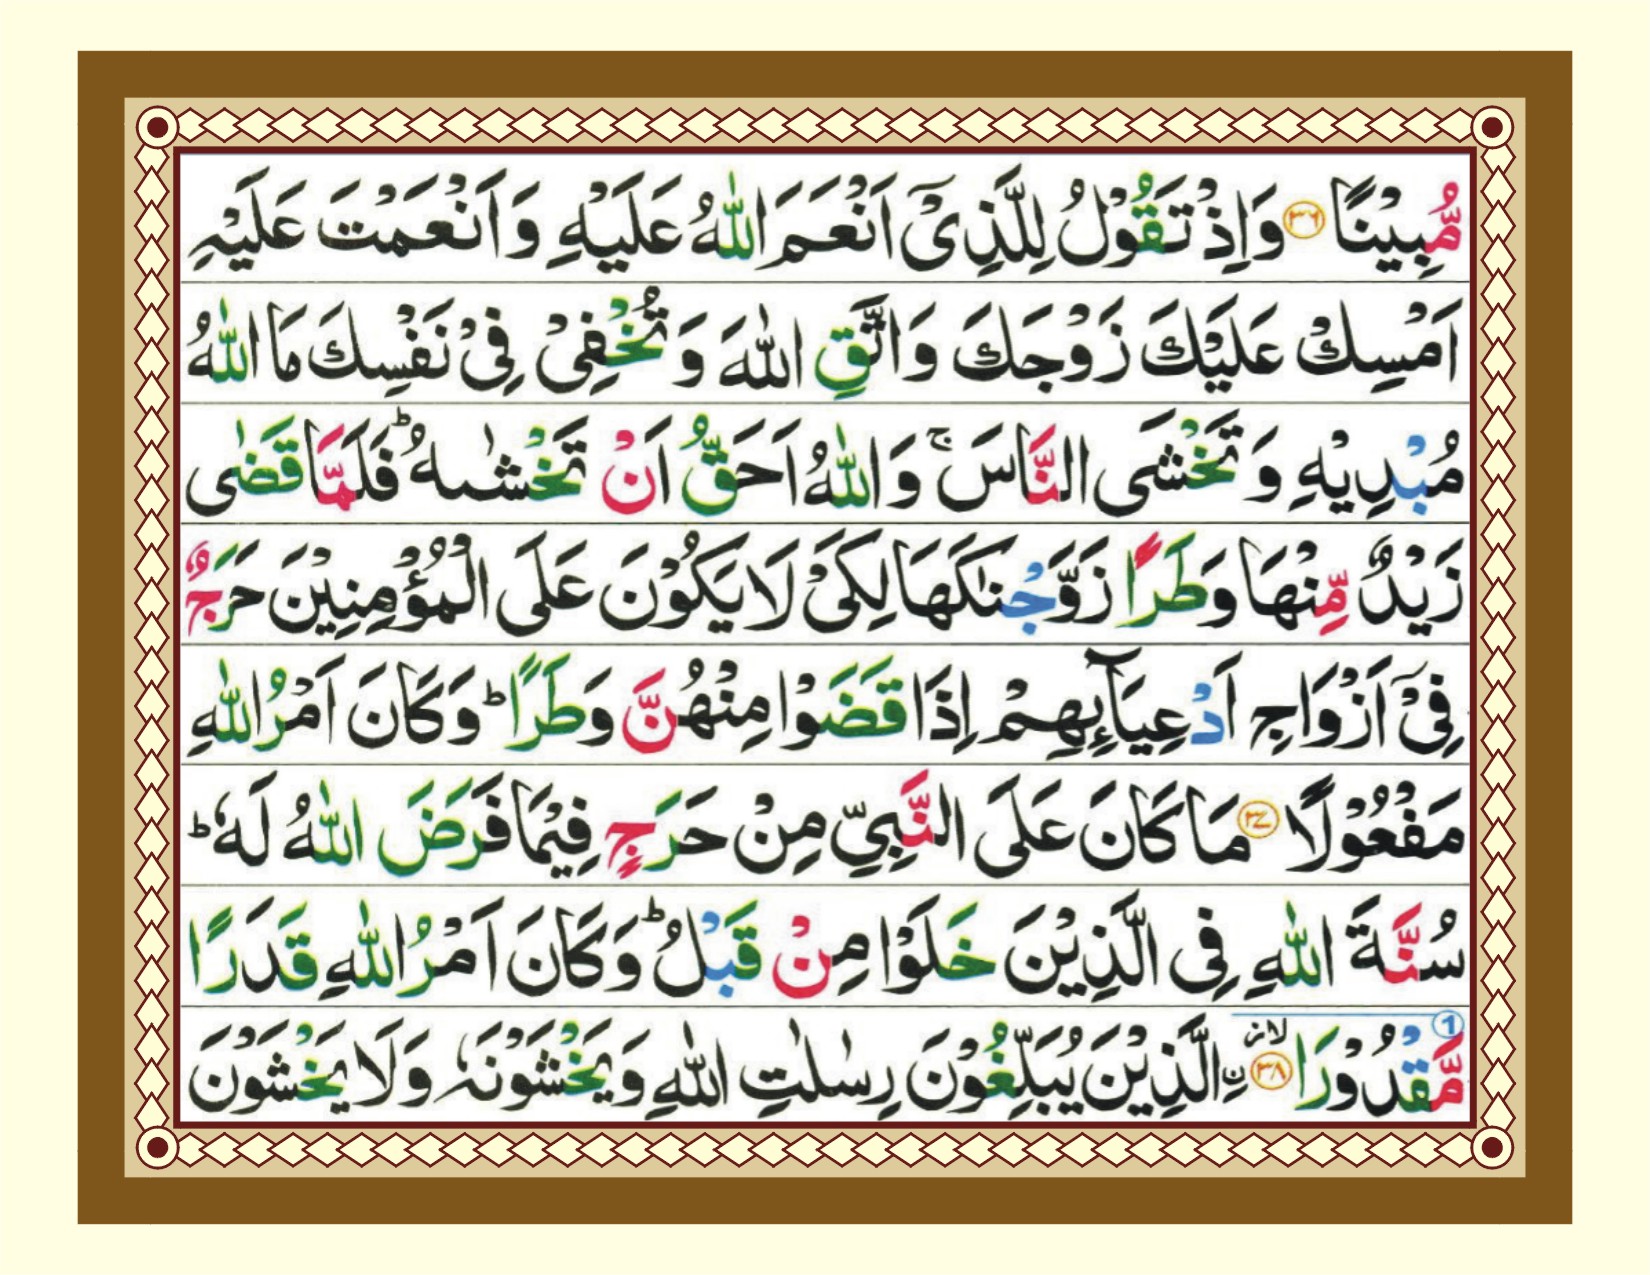 مُّبِيْنًا ۳۶ وَاِذْ تَقُوْلُ لِلَّذِىْۤ اَنْعَمَ اللّٰهُ عَلَيْهِ وَاَنْعَمْتَ عَلَيْهِ
اَمْسِكْ عَلَيْكَ زَوْجَكَ وَاتَّقِ اللّٰهَ وَتُخْفِىْ فِىْ نَفْسِكَ مَا اللّٰهُ
مُبْدِيْهِ وَتَخْشَى النَّاسَ ۚ وَاللّٰهُ اَحَقُّ اَنْ تَخْشٰىهُ ؕ فَلَمَّا قَضٰى
زَيْدٌ مِّنْهَا وَطَرًا زَوَّجْنٰكَهَا لِكَىْ لَا يَكُوْنَ عَلَى الْمُؤْمِنِيْنَ حَرَجٌ
فِىْۤ اَزْوَاجِ اَدْعِيَآئِهِمْ اِذَا قَضَوْا مِنْهُنَّ وَطَرًا ؕ وَكَانَ اَمْرُ اللّٰهِ
مَفْعُوْلًا ۳۷ مَا كَانَ عَلَى النَّبِيِّ مِنْ حَرَجٍ فِيْمَا فَرَضَ اللّٰهُ لَهٗ ؕ
سُنَّةَ اللّٰهِ فِى الَّذِيْنَ خَلَوْا مِنْ قَبْلُ ؕ وَكَانَ اَمْرُ اللّٰهِ قَدَرًا
مَّقْدُوْرًا ۳۸ ۙ اۨلَّذِيْنَ يُبَلِّغُوْنَ رِسٰلٰتِ اللّٰهِ وَيَخْشَوْنَهٗ وَلَا يَخْشَوْنَ
1